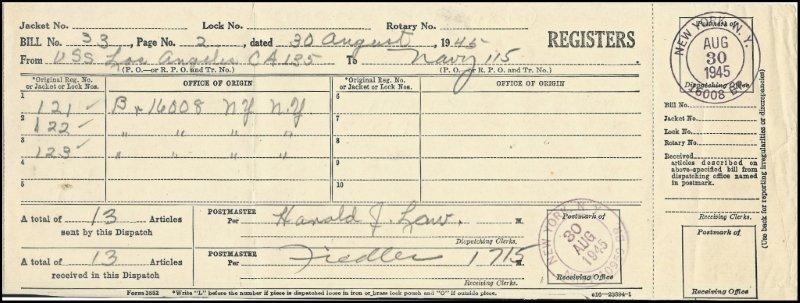 Jacket No. Lock No. Rotary No.
BILL No. 33, Page No. 2, dated 30 August, 1945 REGISTERS
From USS Los Angeles CA 135 To Navy 115
(P. O.—or R. P. O. and Tr. No.) (P. O.—or R. P. O. and Tr. No.)
*Original Reg. No. or Jacket or Lock Nos. OFFICE OF ORIGIN *Original Reg. No. or Jacket or Lock Nos. OFFICE OF ORIGIN
1 121 ✓ Br 16008 NY NY 6
2 122 ✓ " " " " 7
3 123 ✓ " " " " 8
4 9
5 10
A total of 13 Articles sent by this Dispatch
POSTMASTER Per Harold J. Law.
Dispatching Clerks.
A total of 13 Articles received in this Dispatch
POSTMASTER Per Fiedler 1715
Receiving Clerks.
Postmark of
Receiving Office
NEW YORK, N.Y.
30
AUG
1945
Form 3852 *Write "L" before the number if piece is dispatched loose in iron or brass lock pouch and "O" if outside piece. c16—23894-1
Postmark of
Dispatching Office
NEW YORK, N. Y.
AUG
30
1945
16008 BR.
Bill No.
Jacket No.
Lock No.
Rotary No.
Received
articles described on
above-specified bill from
dispatching office named
in postmark.
Receiving Clerks.
Postmark of
Receiving Office
(Use back for reporting irregularities or discrepancies)